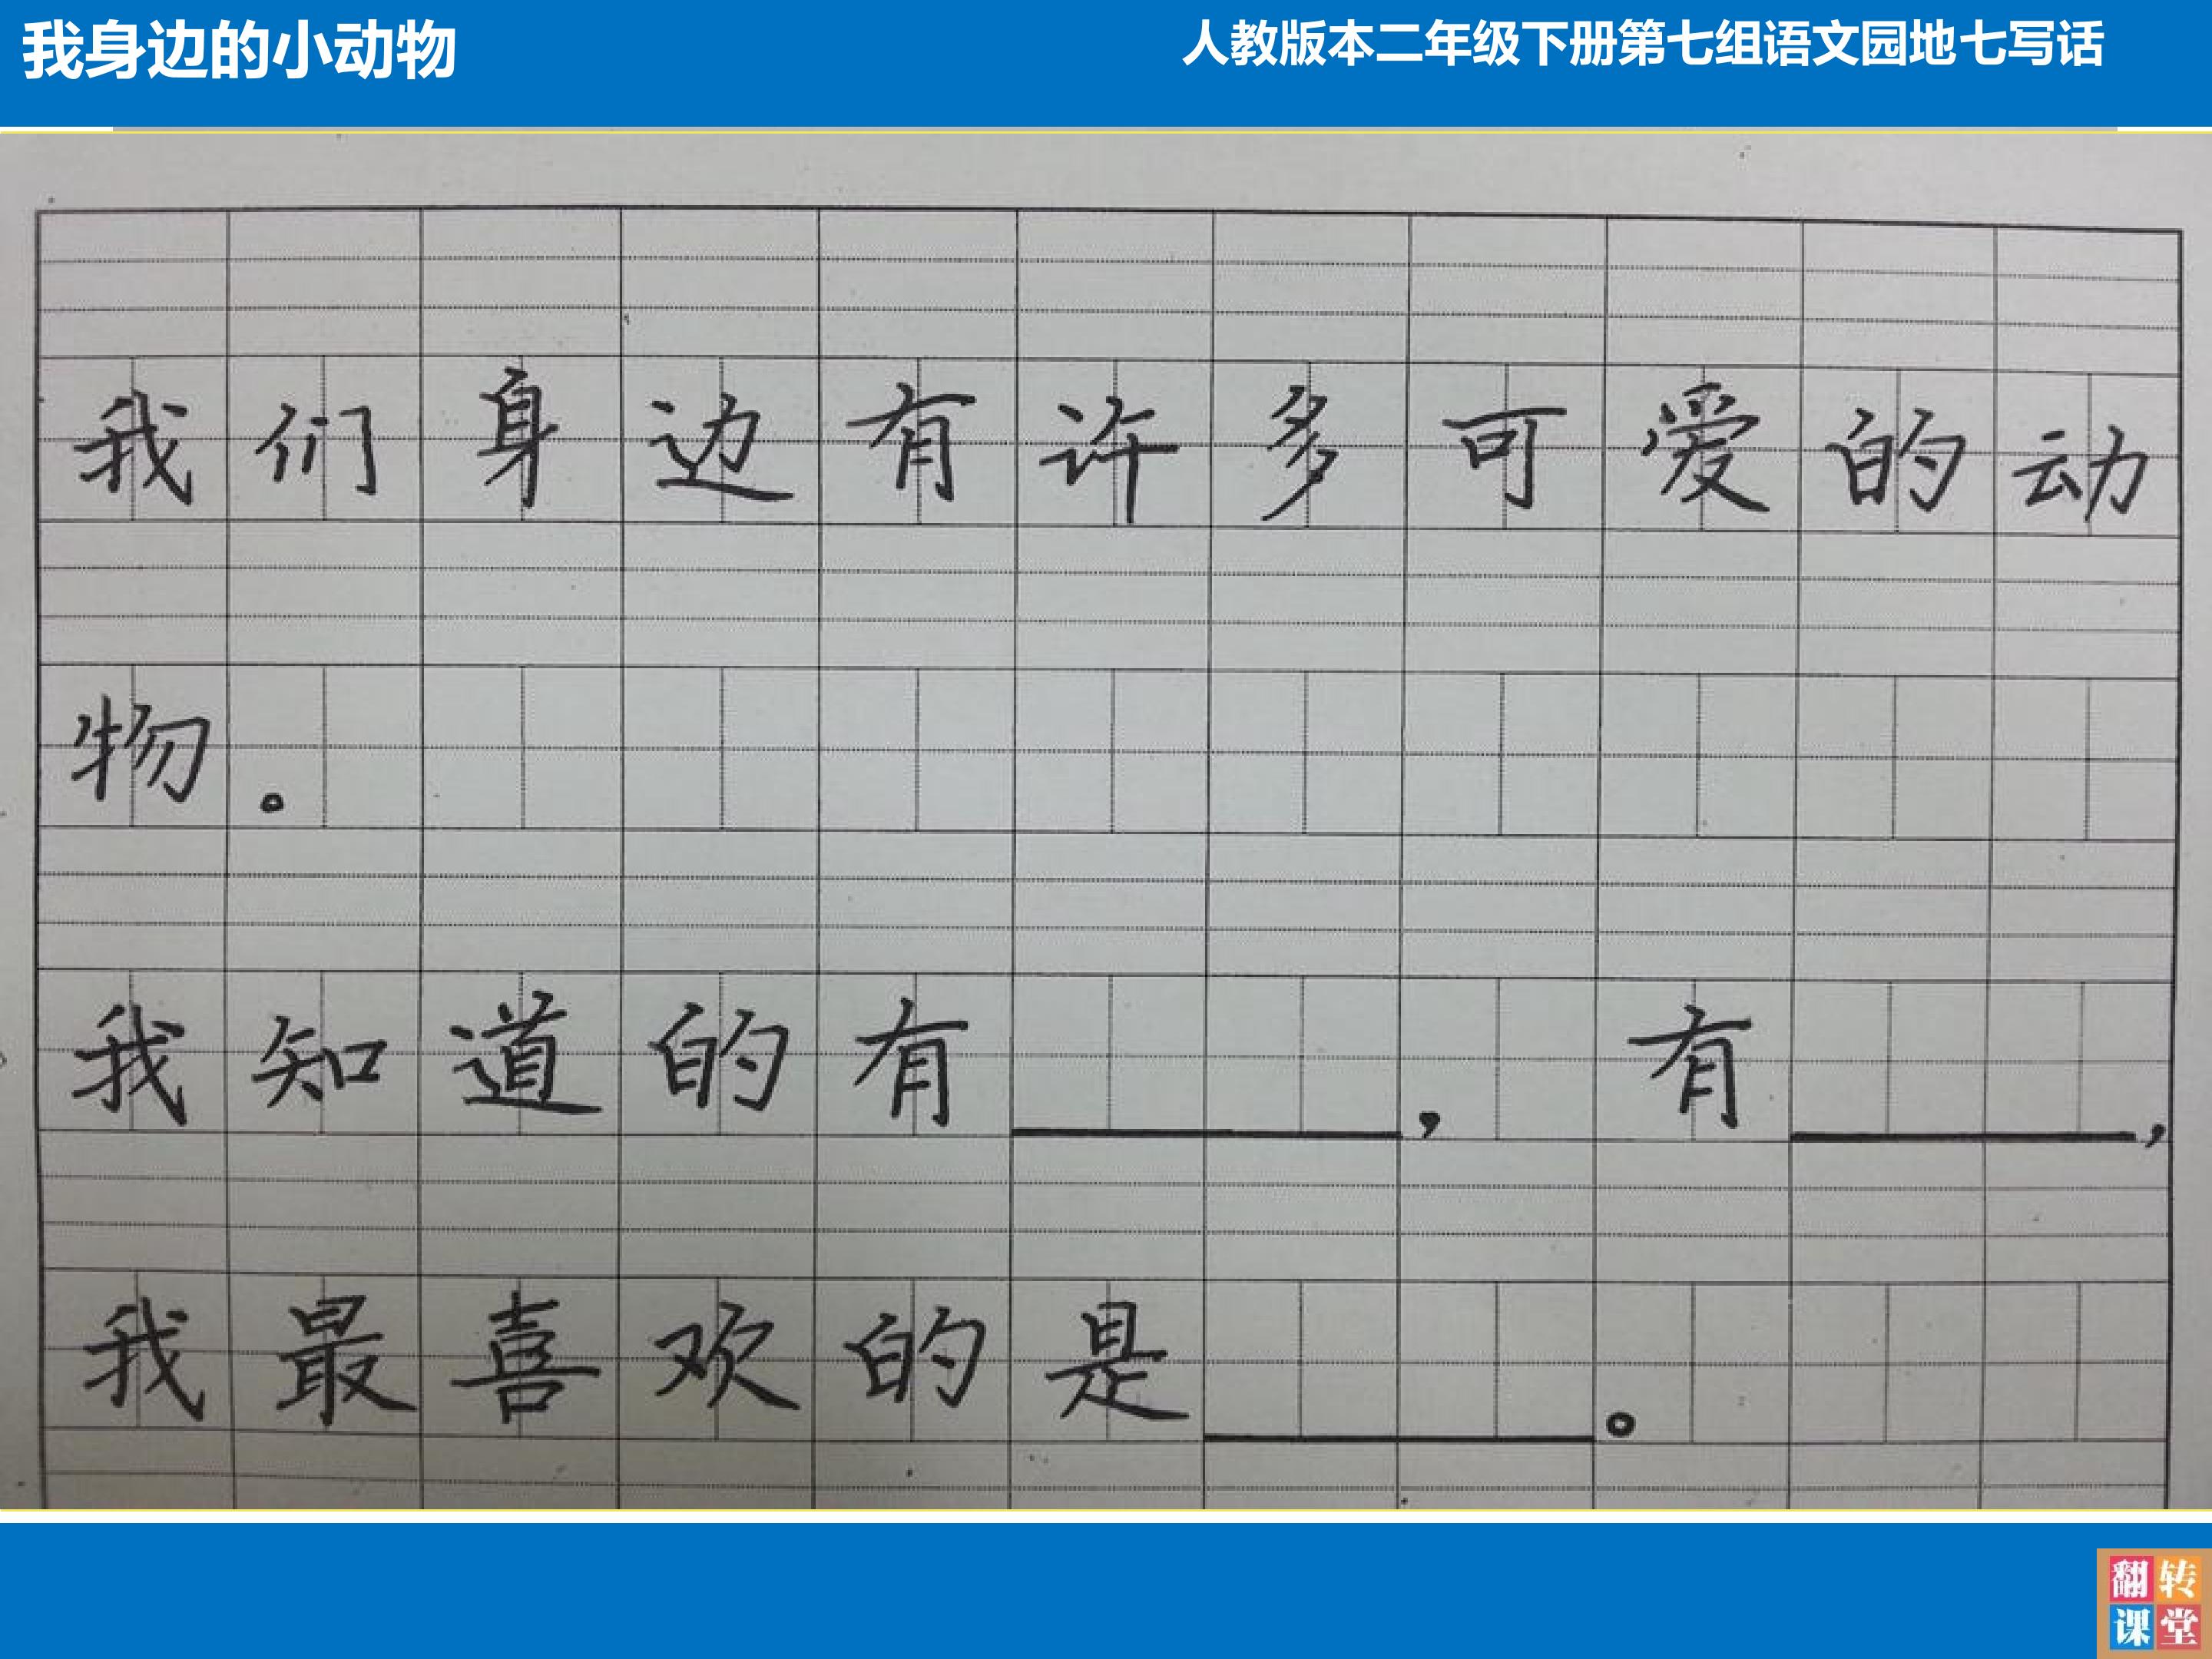 我身边的小动物
人教版本二年级下册第七组语文园地七写话
我们身边有许多可爱的动
物。
我知道的有____，有____，
我最喜欢的是____。
翻转
课堂